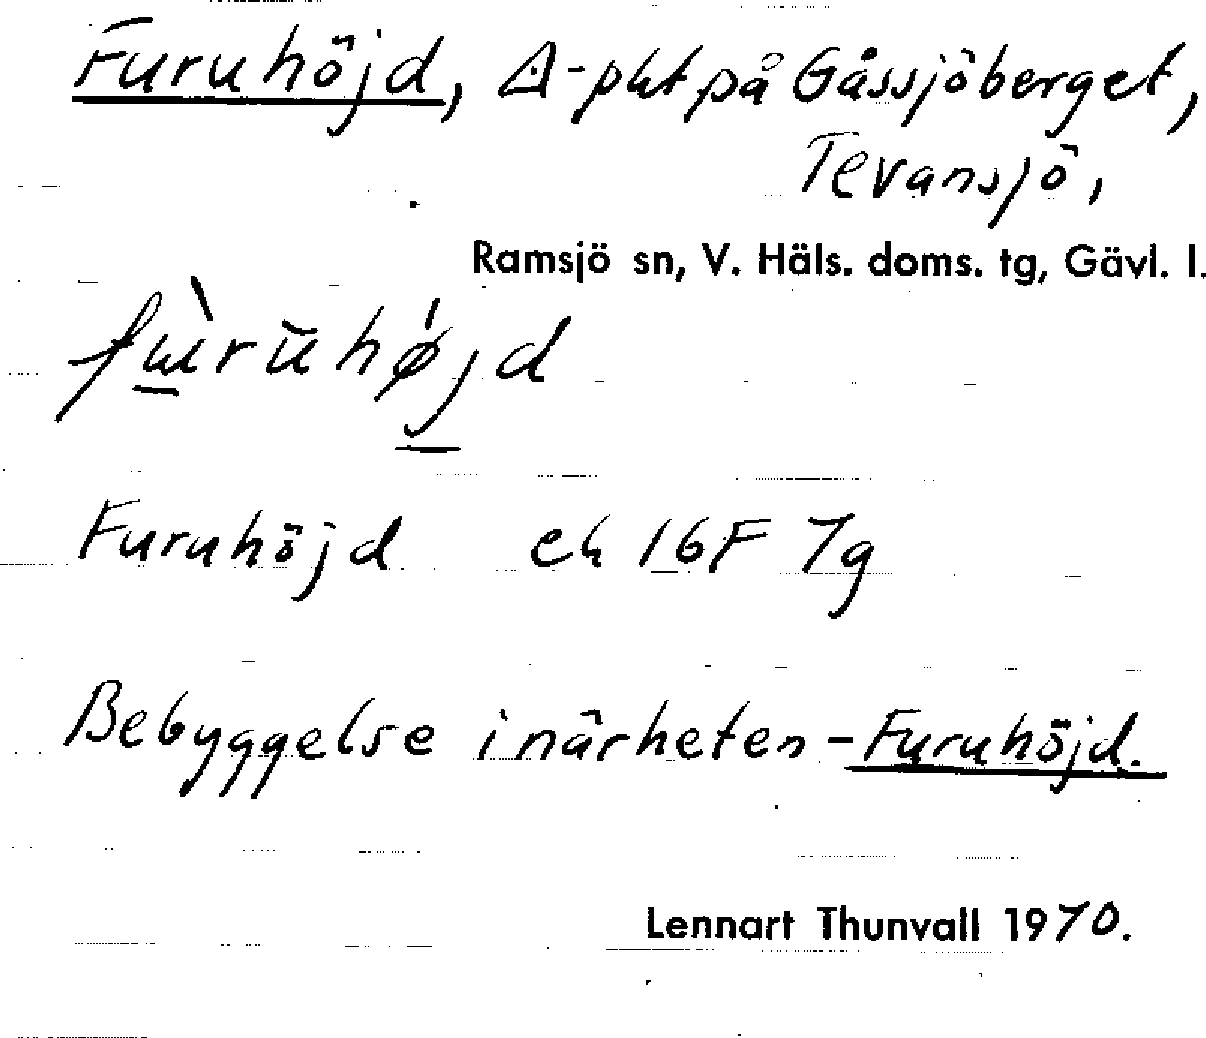 Furuhöjd, Δ-pkt på Gåssjöberget,
Tevansjö,
Ramsjö sn, V. Häls. doms. tg, Gävl. l.
fɯ̀rŭhǿjd
Furuhöjd ek 16F 7g
Bebyggelse i närheten - Furuhöjd.
Lennart Thunvall 1970.